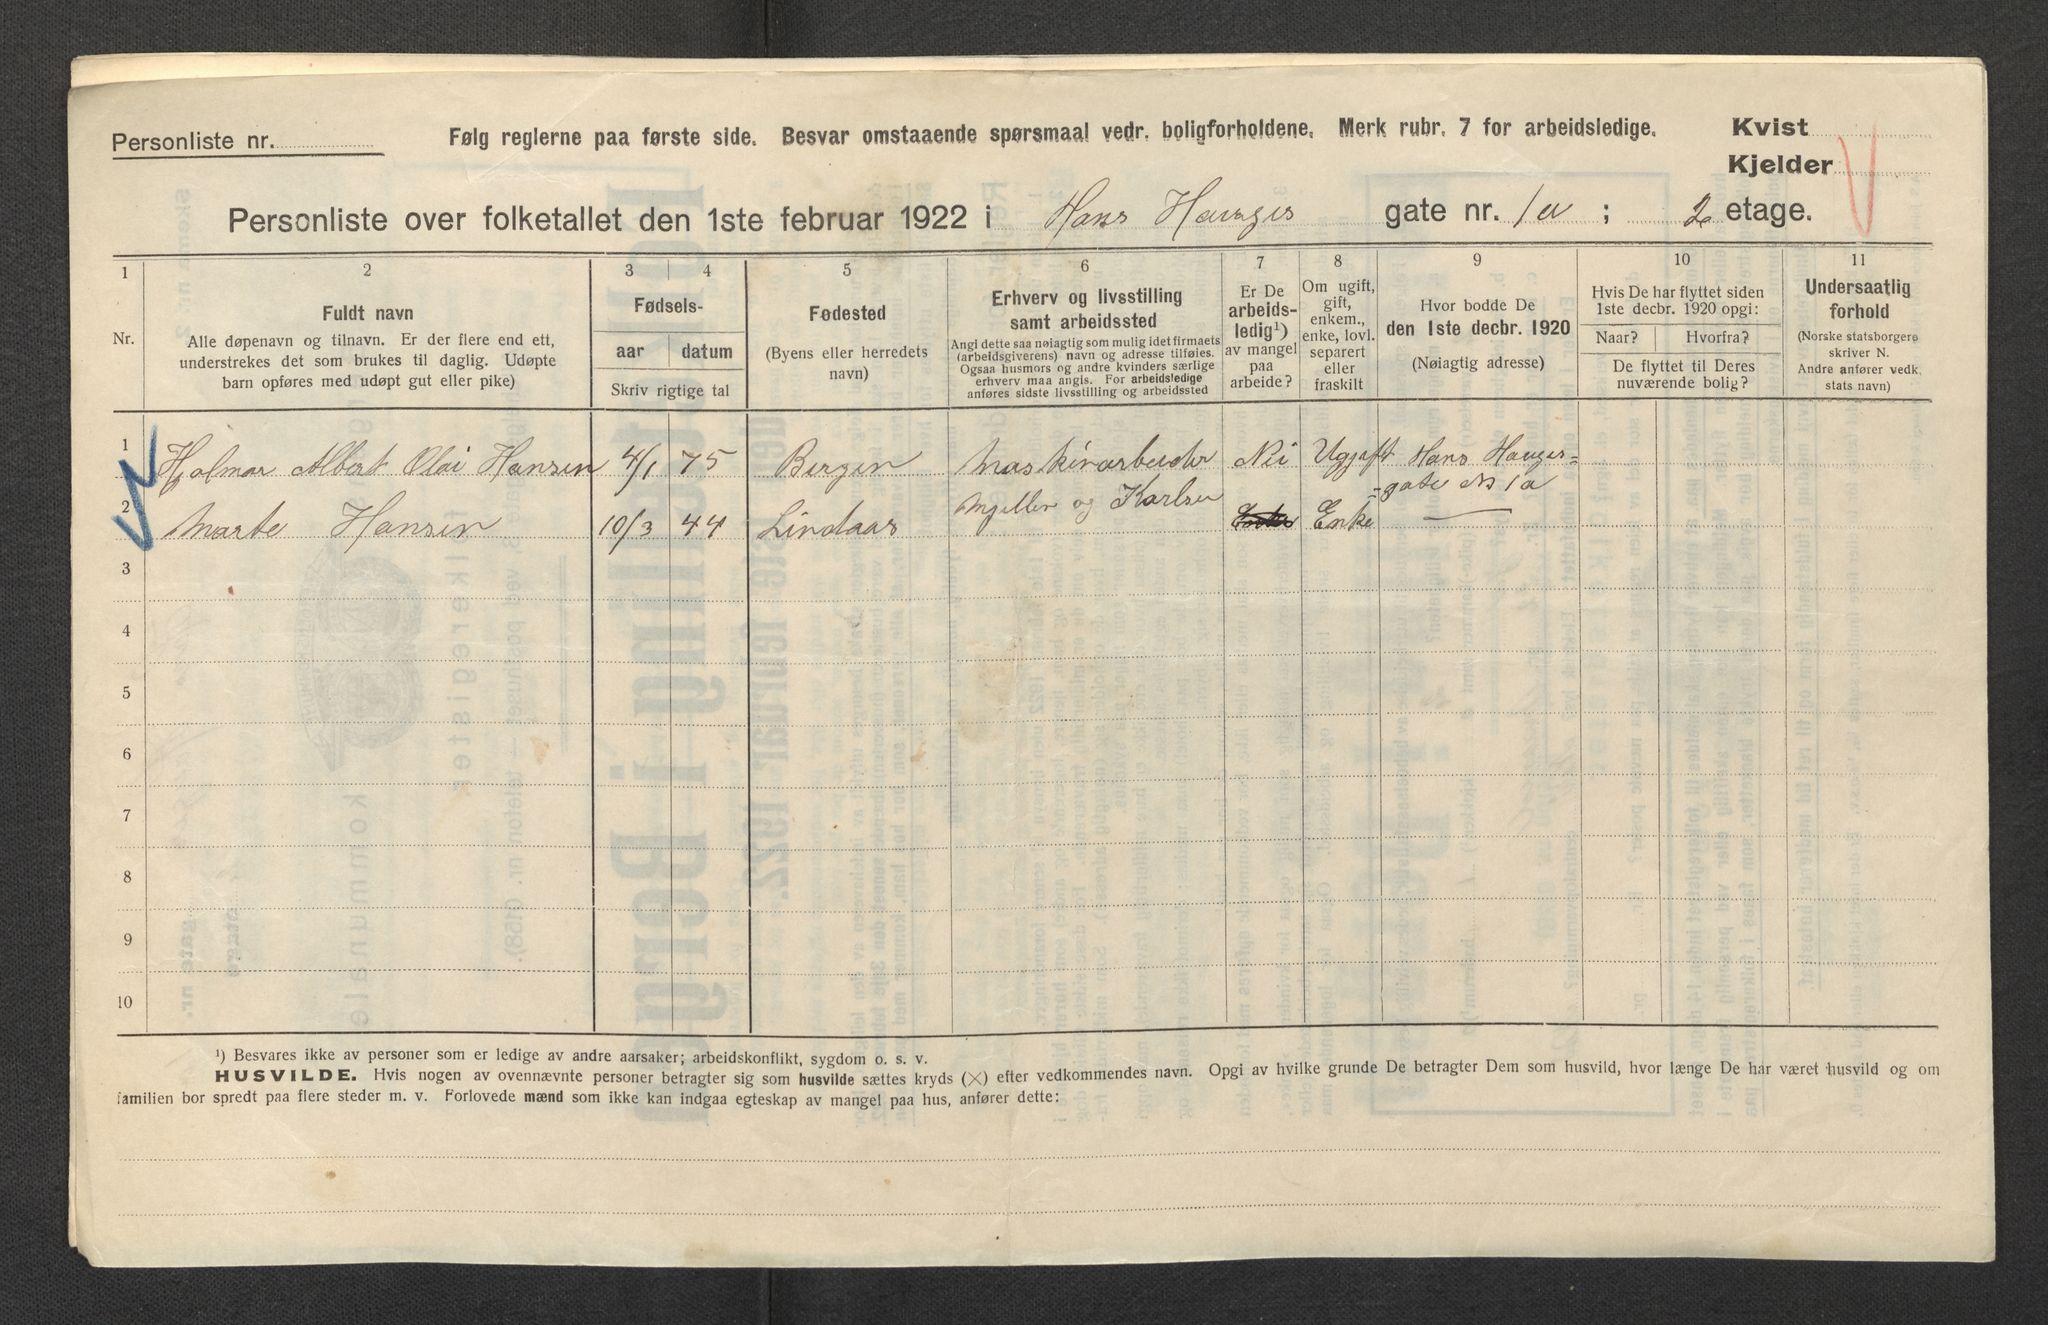 Personliste nr.
Følg reglerne paa første side. Besvar omstaaende spørsmaal vedr. boligforholdene. Merk rubr. 7 for arbeidsledige.
Kvist
Kjelder
Personliste over folketallet den 1ste februar 1922 i Hans Hauges gate nr. 1a ; 2 etage.
1 2 3 4 5 6 7 8 9 10 11
Nr.
Fuldt navn
Alle døpenavn og tilnavn. Er der flere end ett,
understrekes det som brukes til daglig. Udøpte
barn opføres med udøpt gut eller pike)
Fødsels-
aar datum
Skriv rigtige tal
Fødested
(Byens eller herredets
navn)
Erhverv og livsstilling
samt arbeidssted
Angi dette saa nøiagtig som mulig idet firmaets
(arbeidsgiverens) navn og adresse tilføies.
Ogsaa husmors og andre kvinders særlige
erhverv maa angis. For arbeidsledige
anføres sidste livsstilling og arbeidssted
Er De
arbeids-
ledig¹)
av mangel
paa
arbeide?
Om ugift,
gift,
enkem.,
enke, lovl.
separert
eller
fraskilt
Hvor bodde De
den 1ste decbr. 1920
(Nøiagtig adresse)
Hvis De har flyttet siden
1ste decbr. 1920 opgi:
Naar? Hvorfra?
De flyttet til Deres
nuværende bolig?
Undersaatlig
forhold
(Norske statsborgere
skriver N.
Andre anfører vedk.
stats navn)
1 Hjalmar Albert Olai Hansen 4/1 75 Bergen Maskinarbeider Nei Ugift Hans Hauges=
=gate No 1a
2 Marte Hansen 10/3 44 Lindaas Mjellem og Karlsen Enke —
3
4
5
6
7
8
9
10
¹) Besvares ikke av personer som er ledige av andre aarsaker; arbeidskonflikt, sygdom o. s. v.
HUSVILDE. Hvis nogen av ovennævnte personer betragter sig som husvilde sættes kryds (×) efter vedkommendes navn. Opgi av hvilke grunde De betragter Dem som husvild, hvor længe De har været husvild og om
familien bor spredt paa flere steder m. v. Forlovede mænd som ikke kan indgaa egteskap av mangel paa hus, anfører dette: